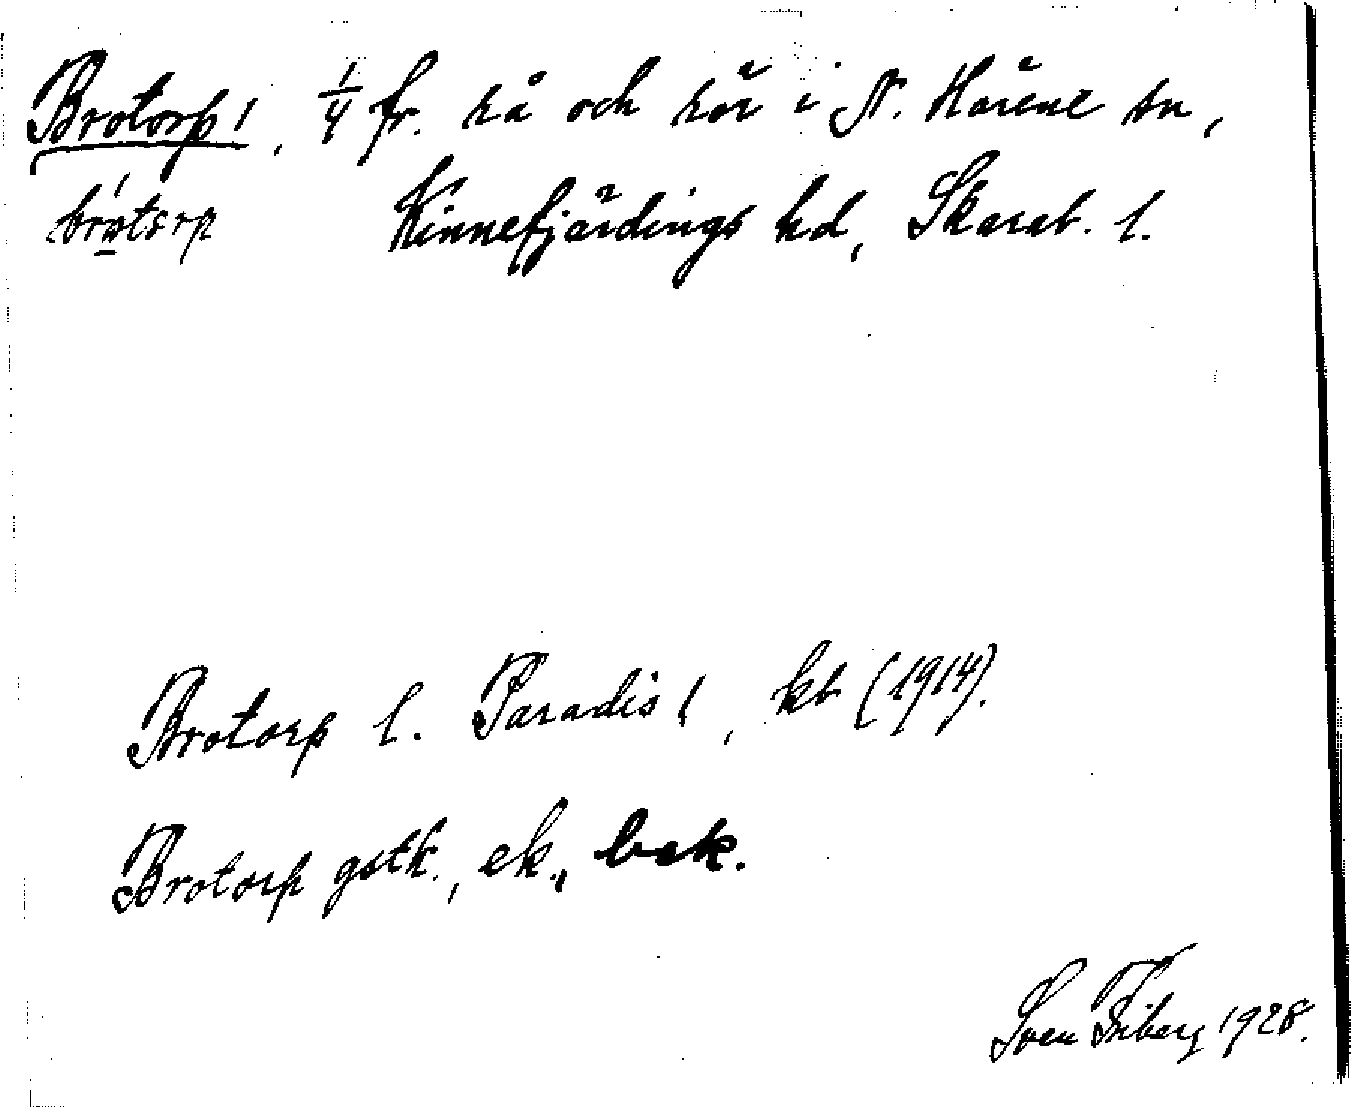 Brotorp 1, 1/4 fr. rå och rör i N. Härene sn,
brotorp Kinnefjärdings hd, Skarab. l.
Brotorp l. Paradis 1, kb (1914).
Brotorp gstk., ek., bek.
Sven Friberg 1928.